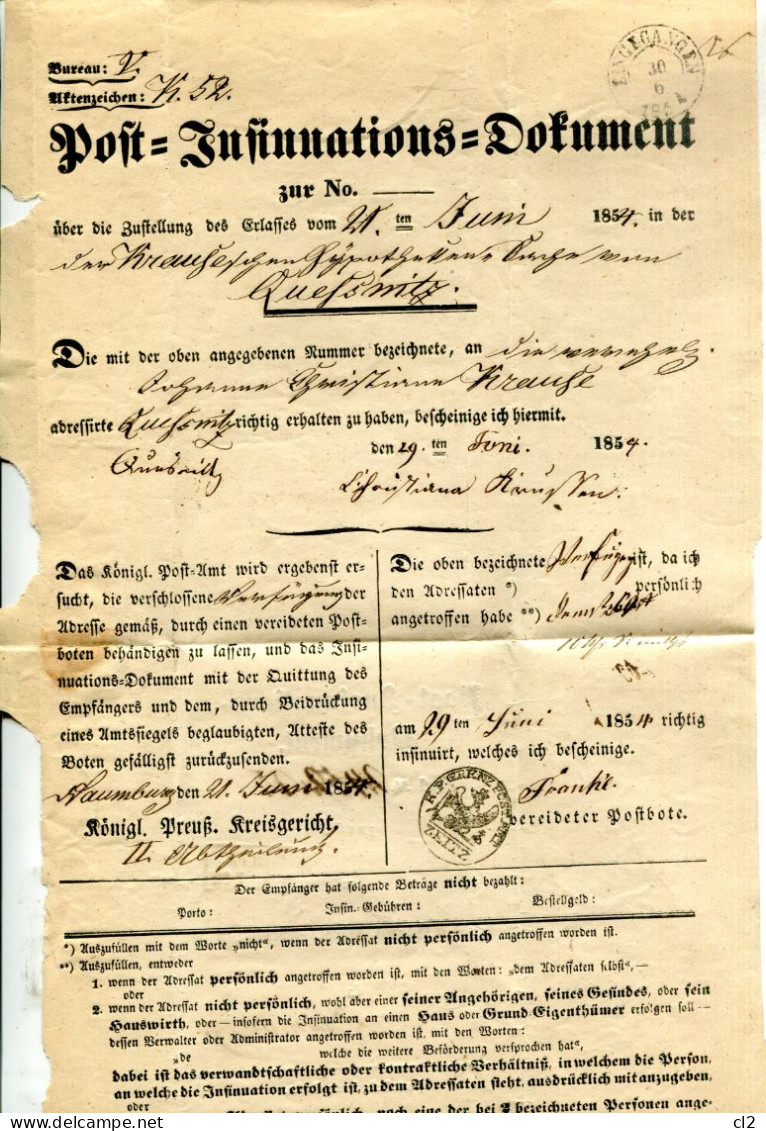 Bureau: V.
Aktenzeichen: K. 52.
EINGEGANGEN
30
6
Post-Insinuations-Dokument
zur No.
über die Zustellung des Erlasses vom 21.ten Juni 1854. in der
der Krauseschen Hypotheken Sache von
Quessnitz.
Die mit der oben angegebenen Nummer bezeichnete, an die verehel.
Johanne Christiane Krause
adressirte Quessnitz richtig erhalten zu haben, bescheinige ich hiermit.
den 29.ten Juni. 1854.
Christiana
Das Königl. Post-Amt wird ergebenst er-
sucht, die verschlossene Verfügung der
Adresse gemäß, durch einen vereideten Post-
boten behändigen zu lassen, und das Insi-
nuations-Dokument mit der Quittung des
Empfängers und dem, durch Beidrückung
eines Amtssiegels beglaubigten, Atteste des
Boten gefälligst zurückzusenden.
Naumburg den 21. Juni 1854.
Königl. Preuß. Kreisgericht
II. Abtheilung.
Die oben bezeichnete Verfügung ist, da ich
den Adressaten *) persönlich
angetroffen habe **)
am 29ten Juni 1854 richtig
insinuirt, welches ich bescheinige.
ZEITZ
vereideter Postbote.
Der Empfänger hat folgende Beträge nicht bezahlt:
Porto: Insin.-Gebühren: Bestellgeld:
*) Auszufüllen mit dem Worte „nicht“, wenn der Adressat nicht persönlich angetroffen worden ist.
**) Auszufüllen, entweder
1. wenn der Adressat persönlich angetroffen worden ist, mit den Worten: „dem Adressaten selbst“, —
oder
2. wenn der Adressat nicht persönlich, wohl aber einer seiner Angehörigen, seines Gesindes, oder sein
Hauswirth, oder — insofern die Insinuation an einen Haus oder Grund-Eigenthümer erfolgen soll —
dessen Verwalter oder Administrator angetroffen worden ist, mit den Worten:
„de welche die weitere Beförderung versprochen hat“,
dabei ist das verwandtschaftliche oder kontraktliche Verhältniß, in welchem die Person,
an welche die Insinuation erfolgt ist, zu dem Adressaten steht, ausdrücklich mit anzugeben,
oder
noch eine der bei 2 bezeichneten Personen ange-
cl2